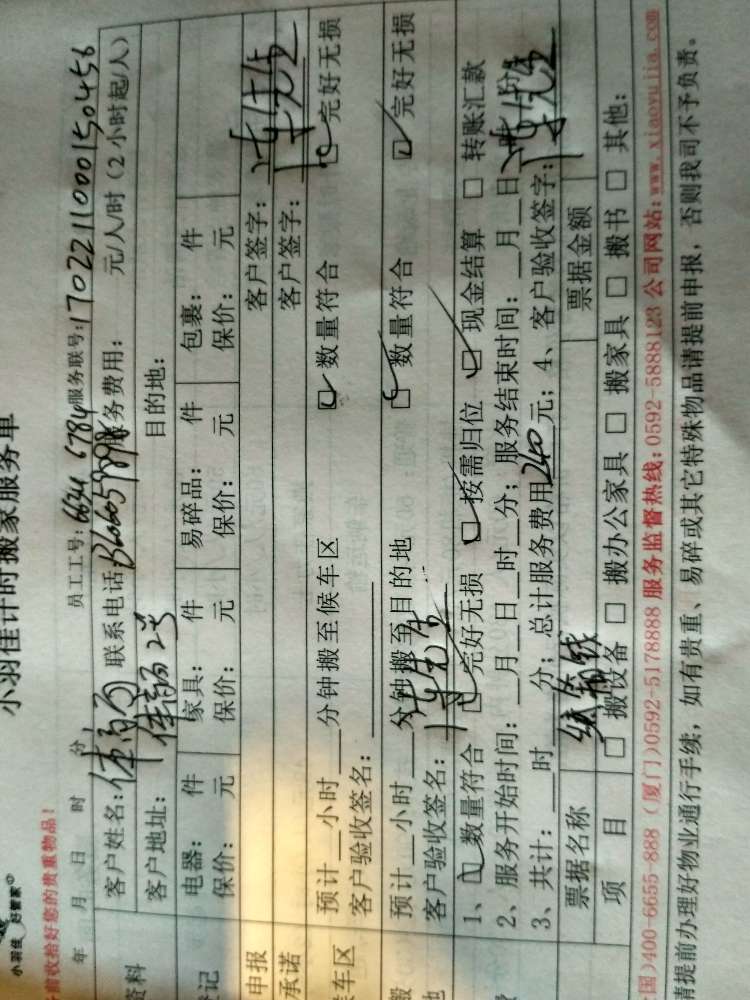 小羽佳 好管家
小羽佳计时搬家服务单
前收拾好您的贵重物品!
员工工号: 6634 6784 服务联号: 1702211000150456
年 月 日 时 分
资料 客户姓名: 联系电话: 服务费用: 元/人/时(2小时起/人)
客户地址: 目的地:
登记 电器: 件 家具: 件 易碎品: 件 包裹: 件
保价: 元 保价: 元 保价: 元 保价: 元
申报 客户签字:
承诺 客户签字:
车区 预计__小时__分钟搬至候车区 数量符合 完好无损
客户验收签名:
搬 预计__小时__分钟搬至目的地 数量符合 完好无损
地 客户验收签名:
1、 数量符合 完好无损 按需归位 现金结算 转账汇款
2、服务开始时间:__月__日__时__分; 服务结束时间:__月__日__时__分
3、共计:__时__分; 总计服务费用 240 元; 4、客户验收签字:
票据名称 票据金额
项目 搬设备 搬办公家具 搬家具 搬书 其他:
国)400-6655-888 (厦门)0592-5178888 服务监督热线:0592-5888123 公司网站:www.xiaoyujia.com
请提前办理好物业通行手续, 如有贵重、易碎或其它特殊物品请提前申报, 否则我司不予负责。